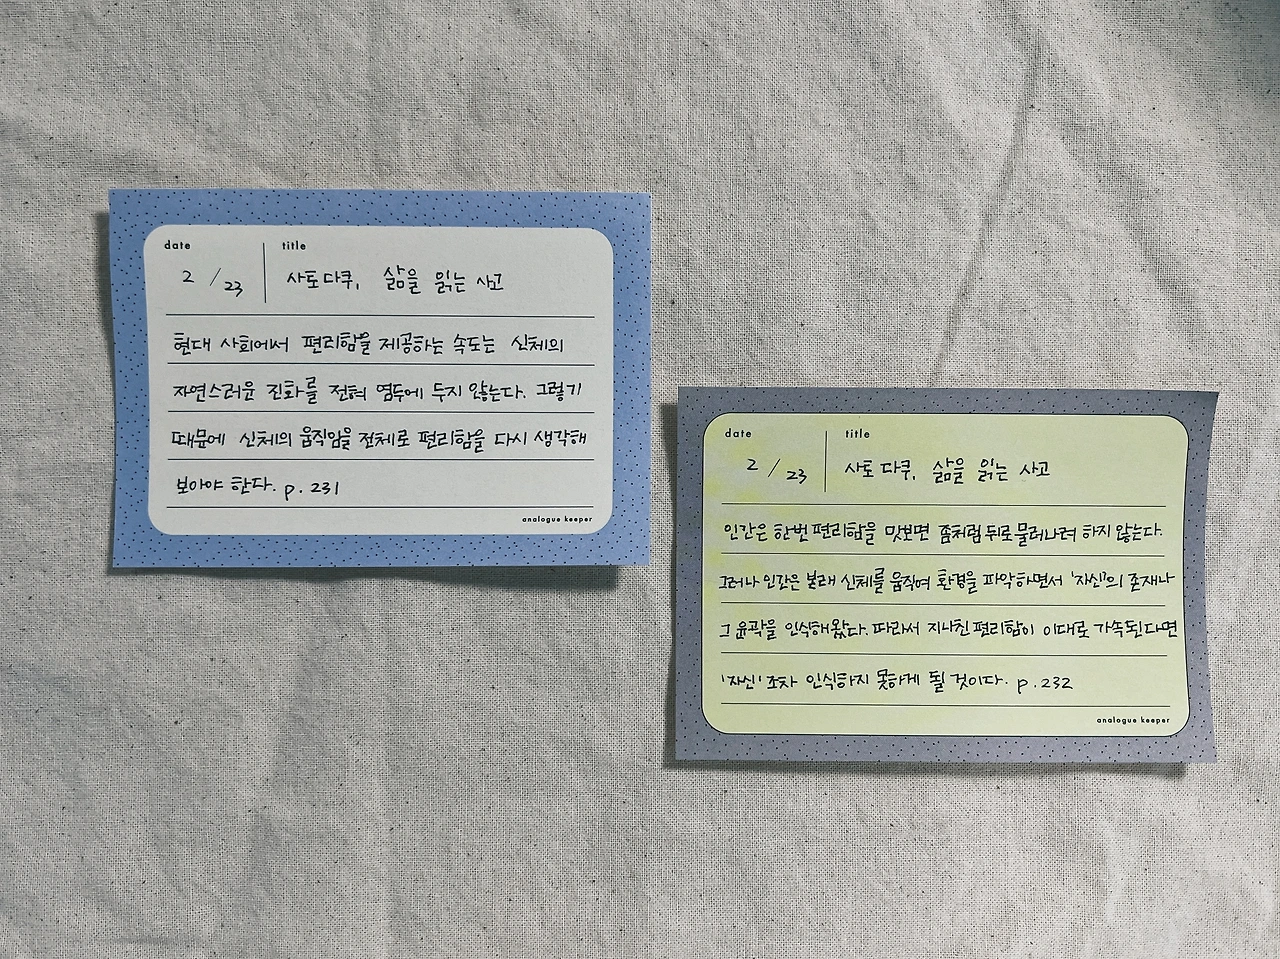 date title
2 / 23 사토 다쿠, 삶을 읽는 사고
현대 사회에서 편리함을 제공하는 속도는 신체의
자연스러운 진화를 전혀 염두에 두지 않는다. 그렇기
때문에 신체의 움직임을 전체로 편리함을 다시 생각해
보아야 한다. p. 231
analogue keeper
date title
2 / 23 사토 다쿠, 삶을 읽는 사고
인간은 한번 편리함을 맛보면 좀처럼 뒤로 물러나려 하지 않는다.
그러나 인간은 본래 신체를 움직여 환경을 파악하면서 '자신'의 존재나
그 윤곽을 인식해왔다. 따라서 지나친 편리함이 이대로 가속된다면
'자신' 조차 인식하지 못하게 될 것이다. p. 232
analogue keeper